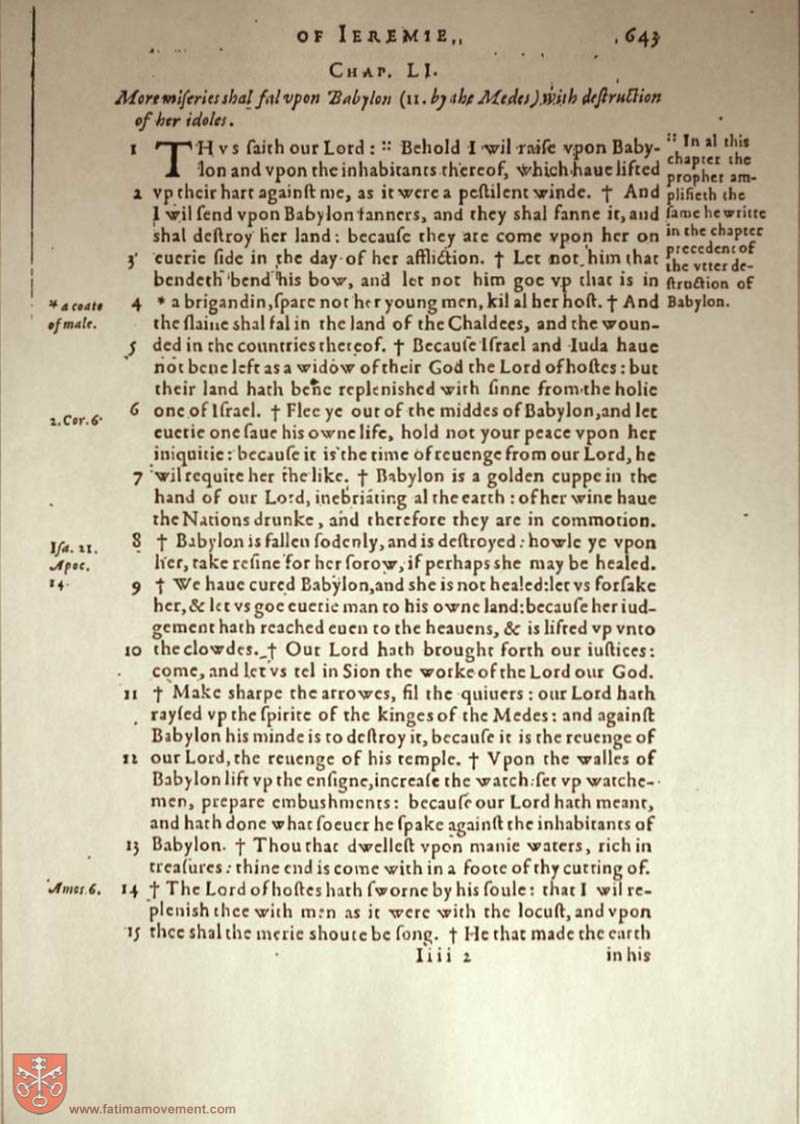 OF IEREMIE,, 643
CHAP. LI.
More miſeries shal fal vpon Babylon (11. by the Medes) with deſtruction
of her idoles.
1 THVS ſaith our Lord: :: Behold I wil raiſe vpon Baby-
lon and vpon the inhabitants thereof, which haue lifted
2 vp their hart againſt me, as it were a peſtilent winde. † And
I wil ſend vpon Babylon fanners, and they shal fanne it, and
shal deſtroy her land: becauſe they are come vpon her on
3 euerie ſide in the day of her affliction. † Let not him that
bendeth bend his bow, and let not him goe vp that is in
4 * a brigandin, ſpare not her young men, kil al her hoſt. † And
the ſlaine shal fal in the land of the Chaldees, and the woun-
5 ded in the countries thereof. † Becauſe Iſrael and Iuda haue
not bene left as a widow of their God the Lord of hoſtes: but
their land hath bene replenished with ſinne from the holie
6 one of Iſrael. † Flee ye out of the middes of Babylon, and let
euerie one ſaue his owne life, hold not your peace vpon her
iniquitie: becauſe it is the time of reuenge from our Lord, he
7 wil requite her the like. † Babylon is a golden cuppe in the
hand of our Lord, inebriating al the earth: of her wine haue
the Nations drunke, and therefore they are in commotion.
8 † Babylon is fallen ſodenly, and is deſtroyed: howle ye vpon
her, take roſine for her ſorow, if perhaps she may be healed.
9 † We haue cured Babylon, and she is not healed: let vs forſake
her, & let vs goe euerie man to his owne land: becauſe her iud-
gement hath reached euen to the heauens, & is lifted vp vnto
10 the clowdes. † Our Lord hath brought forth our iuſtices:
come, and let vs tel in Sion the worke of the Lord our God.
11 † Make sharpe the arrowes, fil the quiuers: our Lord hath
rayſed vp the ſpirite of the kinges of the Medes: and againſt
Babylon his minde is to deſtroy it, becauſe it is the reuenge of
12 our Lord, the reuenge of his temple. † Vpon the walles of
Babylon lift vp the enſigne, increaſe the watch: ſet vp watche-
men, prepare embushments: becauſe our Lord hath meant,
and hath done what ſoeuer he ſpake againſt the inhabitants of
13 Babylon. † Thou that dwelleſt vpon manie waters, rich in
treaſures: thine end is come with in a foote of thy cutting of.
14 † The Lord of hoſtes hath ſworne by his ſoule: that I wil re-
plenish thee with men as it were with the locuſt, and vpon
15 thee shal the merie shoute be ſong. † He that made the earth
Iiii 2 in his
:: In al this
chapter the
prophet am-
plifieth the
ſame he writte
in the chapter
precedent of
the vtter de-
ſtruction of
Babylon.
* a coate
of male.
2. Cor. 6.
Iſa. 21.
Apoc.
14.
Amos 6.
www.fatimamovement.com